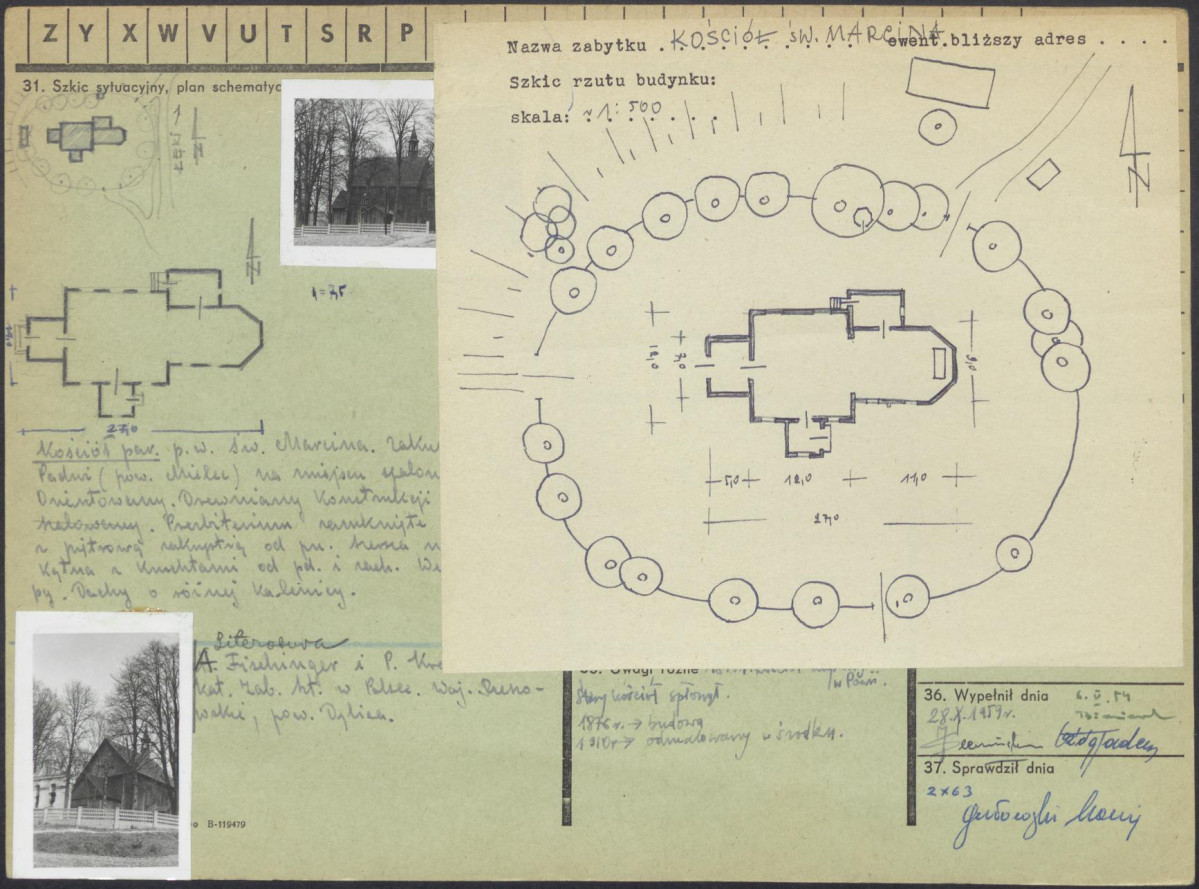 Z Y X W V U T S R P
31. Szkic sytuacyjny, plan schematyc
N
N
1=75
27,0
Kościół par. p.w. św. Marcina. Zaku
Padni (pow. Mielec) na miejscu spalon
Orientowany. Drewniany konstrukcji
szalowany. Prezbiterium zamknięte
z piętrową zakrystią od pn. szersza n
kątna z kruchtami od pd. i zach. We
py. Dachy o różnej kalenicy.
Literatura
A. Fischinger i P. Kre
kat. Zab. Szt. w Polsce. Woj. Rzeszo-
wskie, pow. Dębica.
B-119479
Nazwa zabytku . KOŚCIÓŁ ŚW. MARCINA ewent.bliższy adres . . . .
Szkic rzutu budynku:
skala: ~ 1:500
N
12,0
7,0
9,0
5,0 12,0 11,0
27,0
Uwagi różne
Stary kościół spłonął.
1876 r. → budowa
1910 r → odmalowany w środku.
36. Wypełnił dnia
28.X.1959r.
37. Sprawdził dnia
2 X 63